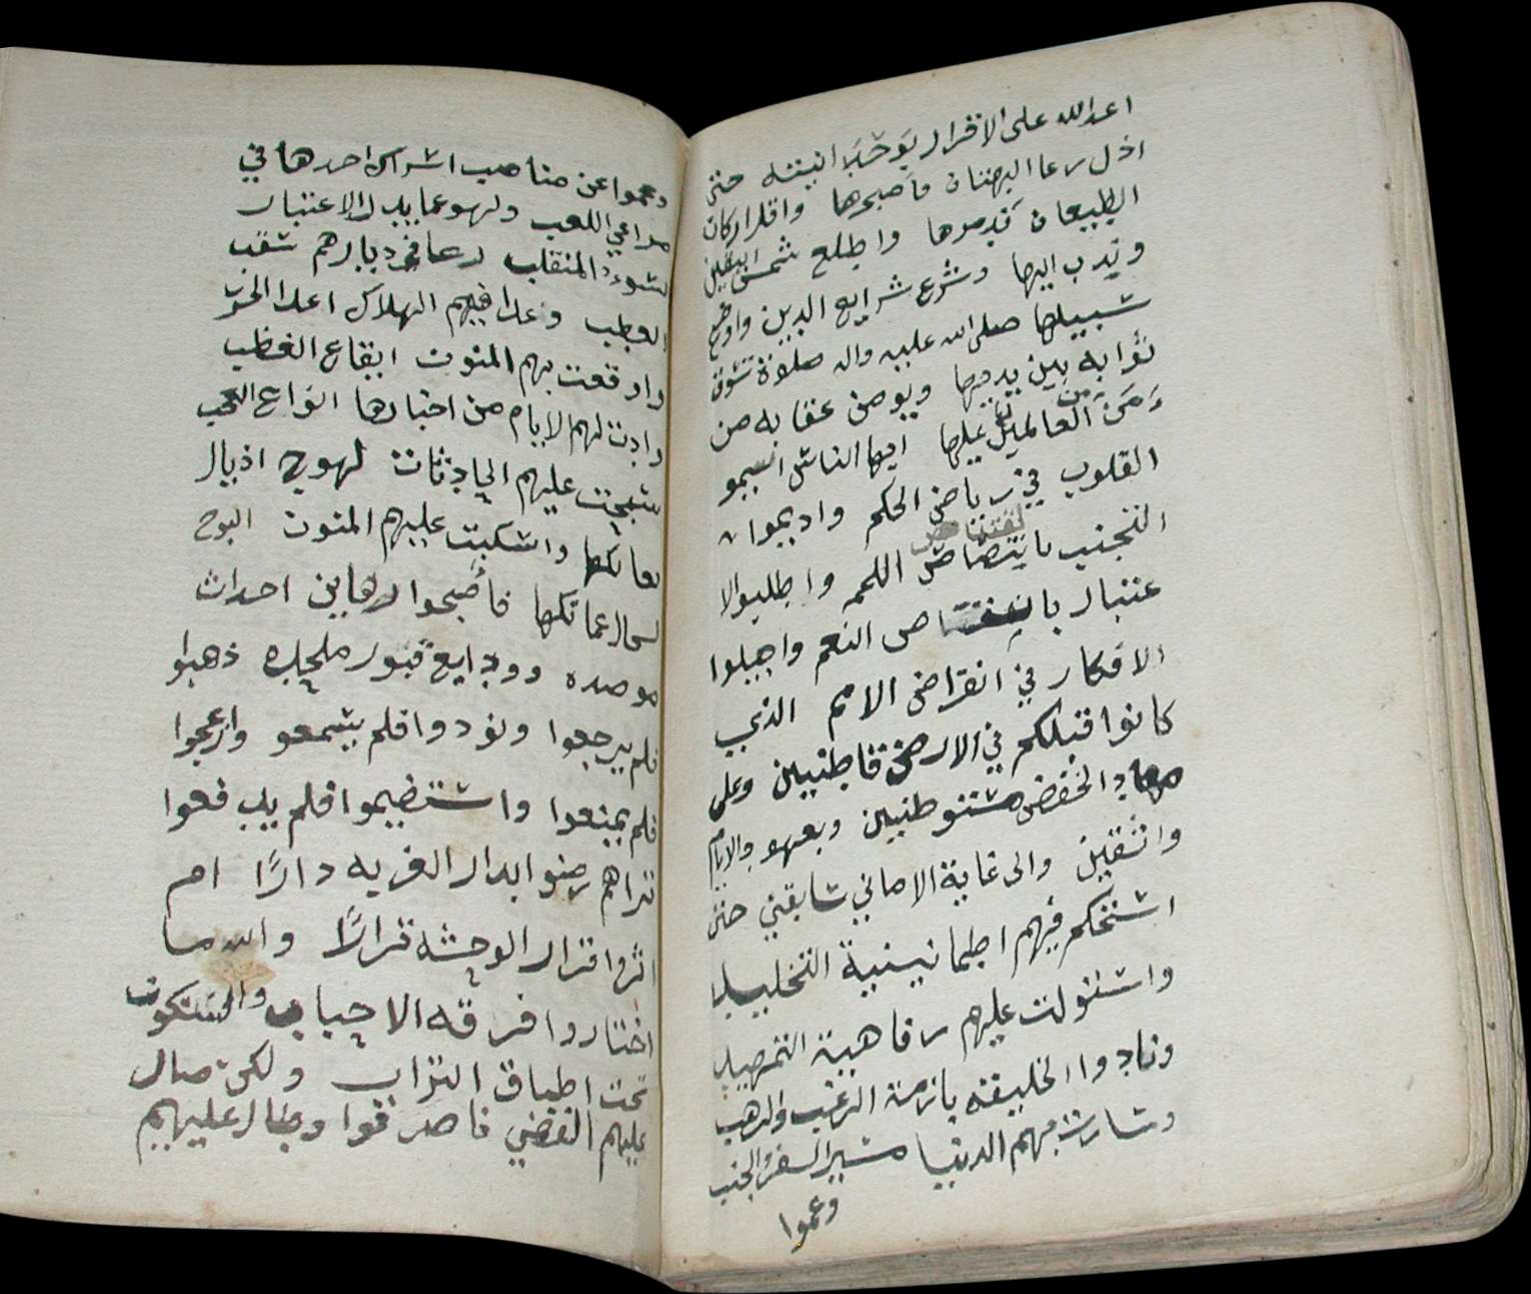 اعدالله على الاقرار بوحدانيته حتى
اذل رعا البهتان واصبحرها واقلر اركان
الطبيعان فدمرها واطلع شمس اليقين
وندب اليها وشرع شرايع الدين واوضح
سبيلها صلى الله عليه واله صلوة تسوق
ثوابه بين يديها ويومن عقابه من
ومن العالمين عليها ايها الناس اسيمو
القلوب في رياض الحكم واديموا
التجنب باينتصاص اللمم واطليوالا
عتبار بانتقاص النعم واجيلوا
الافكار في انقراض الامم الذي
كانوا قبلكم في الارض قاطنيين وعلى
مهاد الخفض مستوطنيين وبعهود الايام
واثقين والى غاية الاماني سابقين حتى
استحكم فيهم اطمانيسية التخليد
واستولت عليهم رفاهية التمهيد
ونادوا الخليقه بازمة الرغب والرهب
وسارت بهم الدنيا مسير السفر والجنب
وعموا
وعموا عن مناصب اشراك احدها في
مراعي اللعب ولهو عما يدل الاعتبار
لسوء المنقلب رعا في ديارهم شغب
العطب وعدا فيهم الهلاك اعدا الحرب
واوقعت بهم المنون ايقاع الغطب
وابدت لهم الايام من اخبارها انواع العجب
سحبت عليهم الحادثات لهوج اذيال
واسكبت عليهم المنون البوح
لسحال عماتكها فاصبحوا رهاين احداث
موصده وودايع قبور ملحده ذهبوا
فلم يرجعوا ونودوا فلم يسمعو وازعجوا
فلم يمنعوا واستضيموا فلم يدفعوا
تراهم رضوا بدار الغربه دارًا ام
اثروا قرار الوحشه قرارًا والله ما
اختاروا فرقه الاحباب والسكون
تحت اطباق التراب ولكن صال
عليهم القضي فاصرفوا وطال عليهم